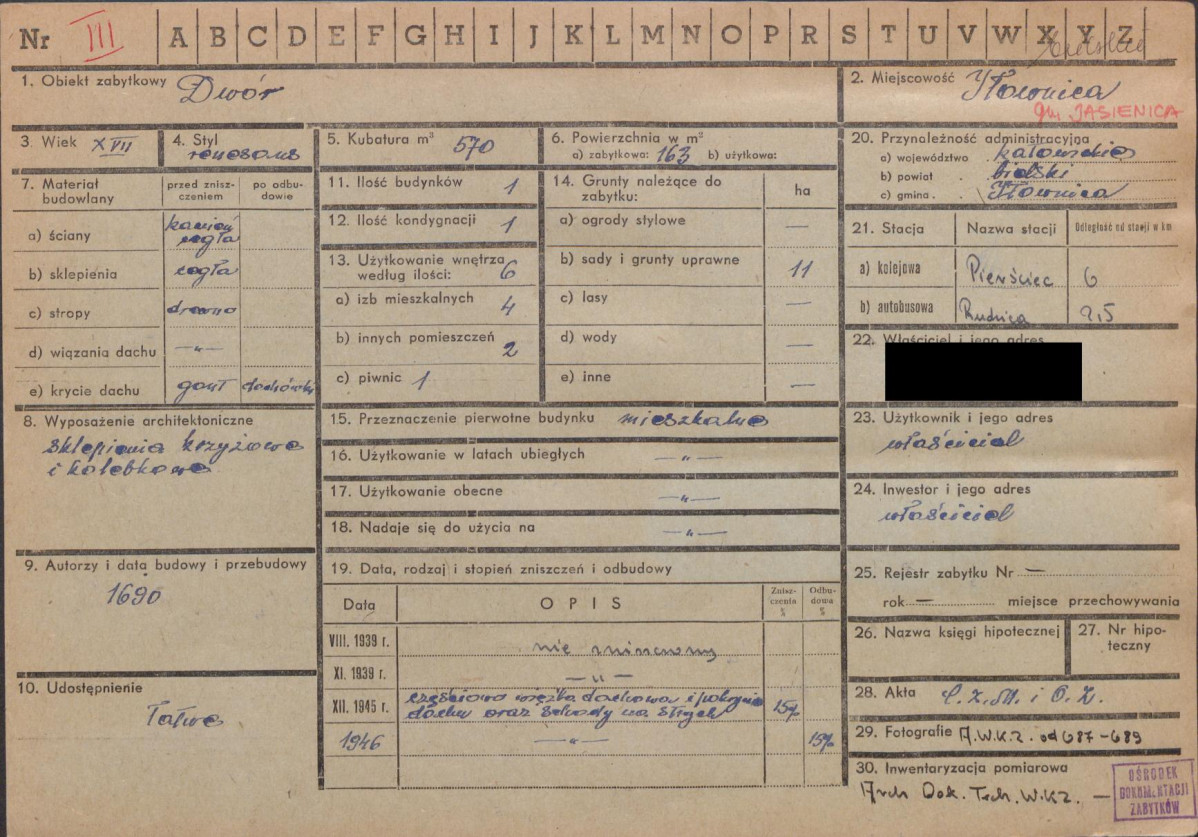 Nr III A B C D E F G H I J K L M N O P R S T U V W X Y Z
1. Obiekt zabytkowy Dwór
2. Miejscowość Iłownica
gm. JASIENICA
3. Wiek XVII
4. Styl renesans
5. Kubatura m³ 570
6. Powierzchnia w m²
a) zabytkowa: 163 b) użytkowa:
7. Materiał budowlany
przed zniszczeniem
po odbudowie
a) ściany kamień cegła
b) sklepienia cegła
c) stropy drewno
d) wiązania dachu —„—
e) krycie dachu gont dachówka
8. Wyposażenie architektoniczne
sklepienia krzyżowe
i kolebkowe
9. Autorzy i data budowy i przebudowy
1690
10. Udostępnienie
łatwe
11. Ilość budynków 1
12. Ilość kondygnacji 1
13. Użytkowanie wnętrza
według ilości: 6
a) izb mieszkalnych 4
b) innych pomieszczeń 2
c) piwnic 1
14. Grunty należące do
zabytku:
ha
a) ogrody stylowe —
b) sady i grunty uprawne 11
c) lasy —
d) wody —
e) inne —
15. Przeznaczenie pierwotne budynku mieszkalne
16. Użytkowanie w latach ubiegłych —„—
17. Użytkowanie obecne —„—
18. Nadaje się do użycia na —„—
19. Data, rodzaj i stopień zniszczeń i odbudowy
Data
OPIS
Zniszczenia %
Odbudowa %
VIII. 1939 r. nie
XI. 1939 r. —„—
XII. 1945 r. częściowo więźba dachowa i pokrycie
dachu oraz schody na strych 15%
1946 —„— 15%
20. Przynależność administracyjna
a) województwo katowickie
b) powiat bielski
c) gmina Iłownica
21. Stacja
Nazwa stacji
Odległość od stacji w km
a) kolejowa Pierściec 6
b) autobusowa Rudzica 2,5
22. Właściciel i jego adres
23. Użytkownik i jego adres
właściciel
24. Inwestor i jego adres
właściciel
25. Rejestr zabytku Nr —
rok — miejsce przechowywania
26. Nazwa księgi hipotecznej
27. Nr hipoteczny
28. Akta
29. Fotografie A.W.K.Z. od 687-689
30. Inwentaryzacja pomiarowa
Arch Dok. Tech. W.K.Z. —
OŚRODEK
DOKUMENTACJI
ZABYTKÓW